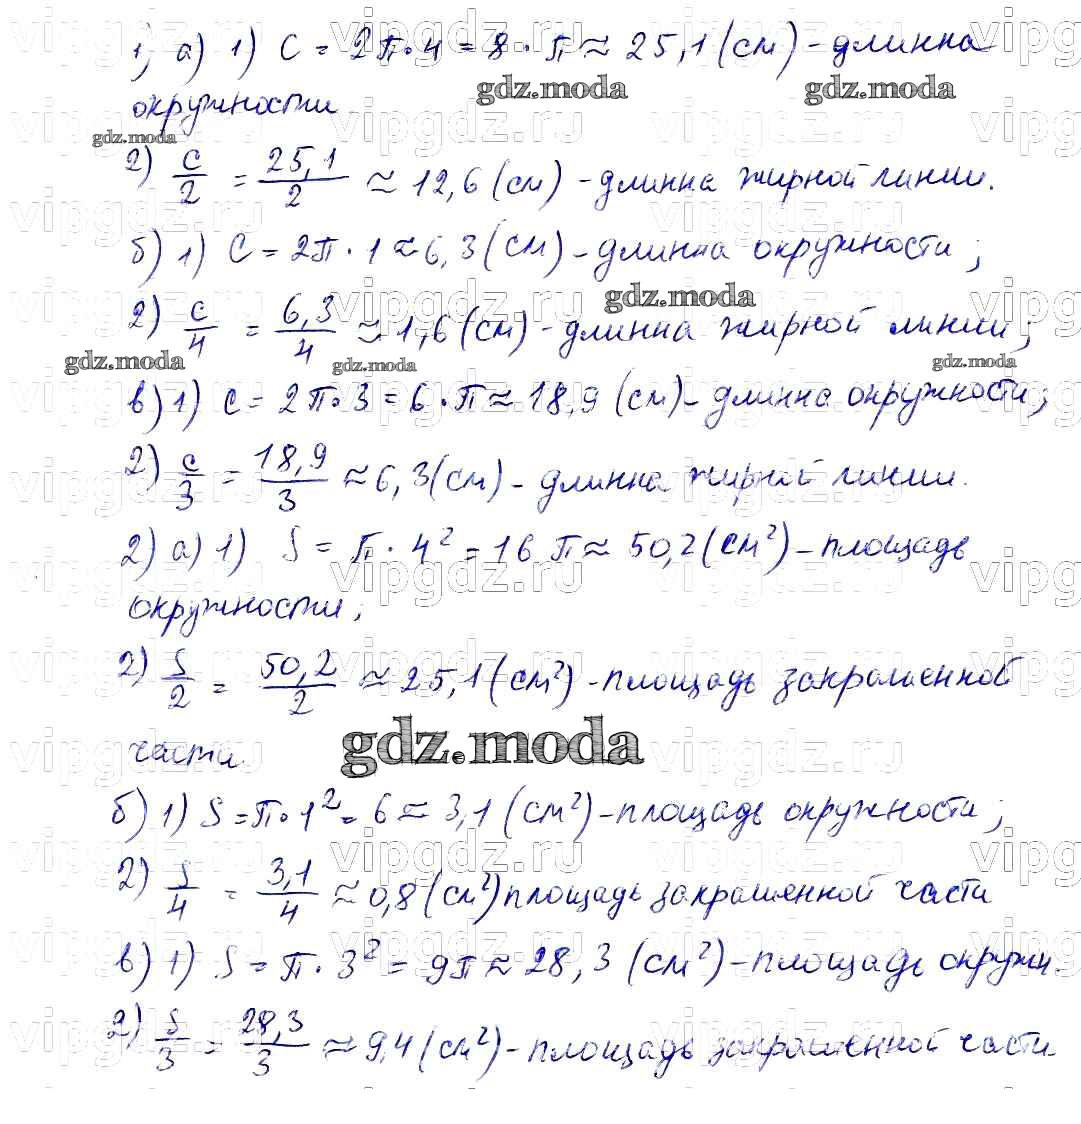 1) а) 1) C = 2π·4 = 8·π ≈ 25,1 (см) - длинна
окружности
2) C/2 = 25,1/2 ≈ 12,6 (см) - длинна жирной линии.
б) 1) C = 2π·1 ≈ 6,3 (см) - длинна окружности;
2) C/4 = 6,3/4 ≈ 1,6 (см) - длинна жирной линии;
в) 1) C = 2π·3 = 6·π ≈ 18,9 (см) - длинна окружности;
2) C/3 = 18,9/3 ≈ 6,3 (см) - длинна жирной линии.
2) а) 1) S = π·4² = 16π ≈ 50,2 (см²) - площадь
окружности;
2) S/2 = 50,2/2 ≈ 25,1 (см²) - площадь закрашенной
части.
б) 1) S = π·1² = 6 ≈ 3,1 (см²) - площадь окружности;
2) S/4 = 3,1/4 ≈ 0,8 (см²) площадь закрашенной части
в) 1) S = π·3² = 9π ≈ 28,3 (см²) - площадь окружн.
2) S/3 = 28,3/3 ≈ 9,4 (см²) - площадь закрашенной части.
gdz.moda
vipgdz.ru